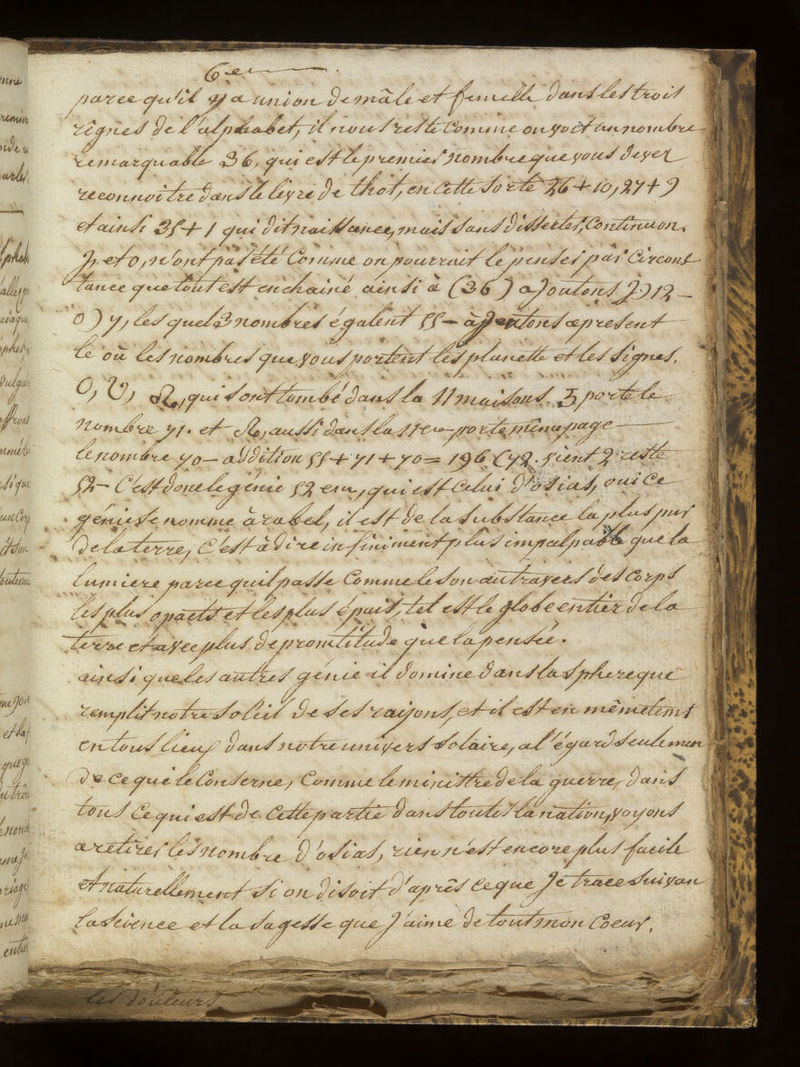 6e
parce qu'il y a union de mâle et femelle dans les trois
règnes de l'alphabet, il nous reste comme on voit un nombre
remarquable 36, qui est le premier nombre que vous devez
reconnoitre dans le livre de thot, en cette sorte 26 + 10, 27 + 9
et ainsi 35 + 1 qui dit naissance, mais sans disserter, Continuon,
J, et o, n'ont pas été Comme on pourrait le penser par Circons
tance que tout est enchainé ainsi à (36) ajoutons J) 12 –
o) 7, les quels 3 nombres égalent 55 – ajoutons apresent
le où les nombres que vous portent les planette et les signes.
qui sont tombé dans la 11 maisons. 5 porte le
nombre 71. et aussi dans la 11eme porte même page
le nombre 70 – addition 55 + 71 + 70 = 196 (72. vient 2 reste
52 – C'est donc le génie 52 em, qui est celui d'osias, ou ice
génie se nomme àrabel, il est de la substance la plus pur
de la terre, C'est à dire infiniment plus impalpable que la
lumiere parce quil passe Comme le son au travers des Corps
les plus opacts et les plus épais, tel est le globe entier de la
terre et avec plus de promtitude que la pensée.
ainsi que les autres génie il domine dans la sphere que
remplit notre soleil de ses raÿons, et il est en même tems
en tous lieux dans notre univers solaire, al'égard seulemen
de ce qui le Conserne, Comme le ministre de la guerre, dans
tous Ce qui est de Cette partie dans toute la nation, voyons
a retirer les nombre d'osias, rien n'est encore plus facile
et naturellement si on disoit d'après ce que Je trace suivan
la science et la sagesse que J'aime de tout mon Coeur.
les douleurs